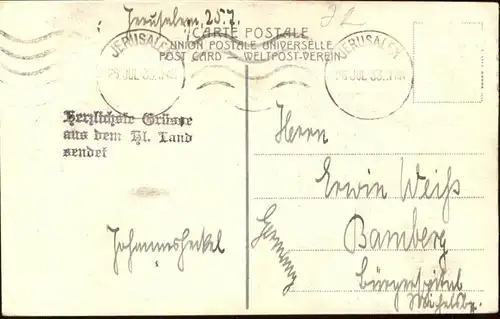 Jerusalem, 25.7.
CARTE POSTALE
UNION POSTALE UNIVERSELLE
POST CARD — WELTPOST-VEREIN
JERUSALEM
25 JUL 33
JERUSALEM
25 JUL 33
Herzlichste Grüsse
aus dem Hl. Land
sendet
Johannes Heckel
Herrn
Erwin Weiß
Bamberg
Germany
Bürgerspital
Michelsbg.